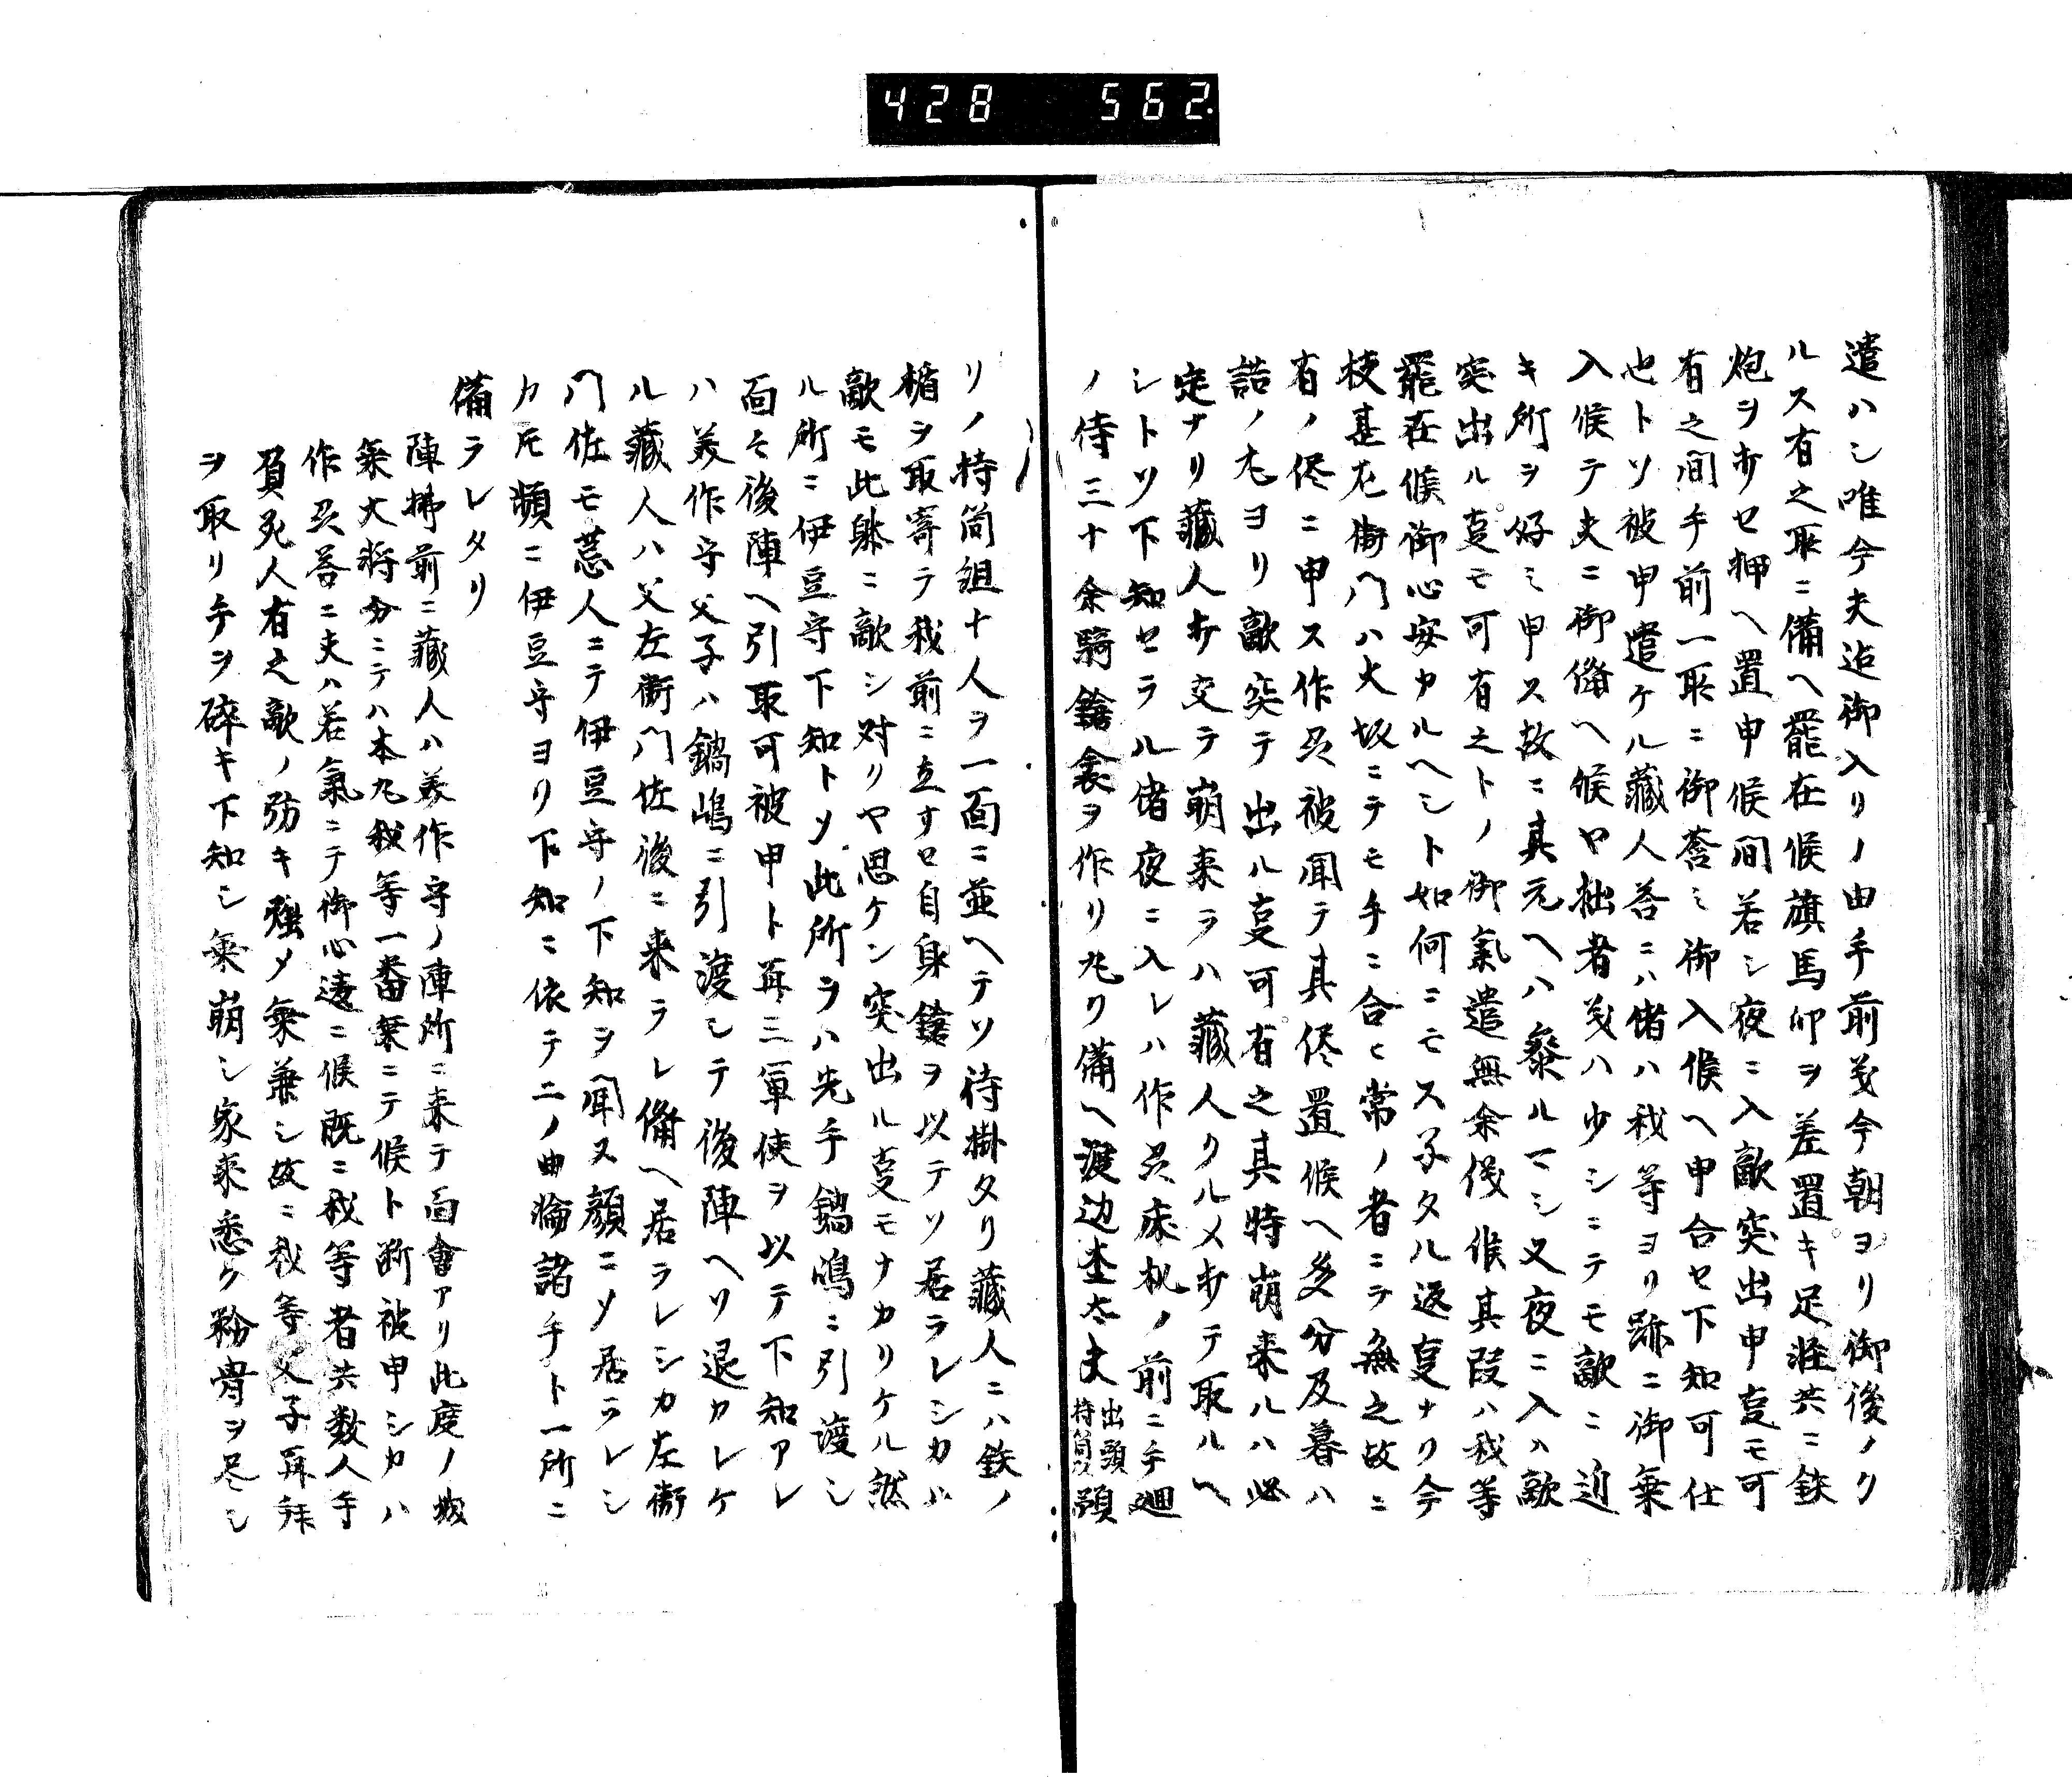 428 562
遣ハシ唯今夫迠御入リノ由手前㐂今朝ヨリ御後ノク
ルス有之㪽ニ備ヘ罷在候旗馬印ヲ差置キ足軽共ニ鉄
炮ヲ打セ押ヘ置申候間若シ夜ニ入敵突出申叓モ可
有之間手前一㪽ニ御答ミ御入候ヘ申合セ下知可仕
也トソ被申遣ケル藏人答ニハ偖ハ我等ヨリ跡ニ御乗
入候テ夫ニ御備ヘ候ヤ拙者㐂ハ少シニテモ敵ニ近
キ所ヲ好ミ申ス故ニ其元ヘハ参ルマシ又夜ニ入ハ敵
突出ル叓モ可有之トノ御氣遣無余儀候其段ハ我等
罷在候御心安カルヘシト如何ニモス子タル返叓ナリ今
枝甚左衛門ハ大坂ニテモ手ニ合ヒ常ノ者ニテ無之故ニ
有ノ侭ニ申ス作兵被聞テ其侭置候ヘ多分及暮ハ
詰ノ丸ヨリ敵突テ出ル叓可有之其時崩来ルハ必
定ナリ藏人打立テ崩来ラハ藏人クルメ打テ取ルヘ
シトソ下知セラル偖夜ニ入レハ作兵床机ノ前ニ手廻
ノ侍三十余騎鎗衾ヲ作リ丸ク備ヘ渡辺杢太夫出頭持筒頭
リノ持筒組十人ヲ一面ニ並ヘテソ待掛タリ藏人ニハ鉄ノ
楯ヲ取寄テ我前ニ立サセ自身鎗ヲ以テソ居ラレシカハ
敵モ此躰ニ敵シ対リヤ思ケン突出ル叓モナカリケル然
ル所ニ伊豆守下知トソ此所ヲハ先手鍋嶋ニ引渡シ
面々後陣ヘ引取可被申ト再三軍使ヲ以テ下知アレ
ハ美作守父子ハ鍋嶋ニ引渡シテ後陣ヘソ退カレケ
ル藏人ハ父左衛門佐後ニ来ラレ備ヘ居ラレシカ左衛
門佐モ荒人ニテ伊豆守ノ下知ヲ聞ヌ顔ニソ居ラレシ
カ𪜈頻ニ伊豆守ヨリ下知ニ依テ二ノ曲輪諸手ト一所ニ
備ラレタリ
陣拂前ニ藏人ハ美作守ノ陣所ニ来テ面會アリ此度ノ城
乗大将分ニテハ本丸我等一番乗ニテ候ト断被申シカハ
作兵答ニ夫ハ若氣ニテ御心違ニ候既ニ我等者共数人手
負死人有之敵ノ防キ強メ乗兼シ故ニ我等父子再拝
ヲ取リ手ヲ碎キ下知シ乗崩シ家来悉ク粉骨ヲ尽シ